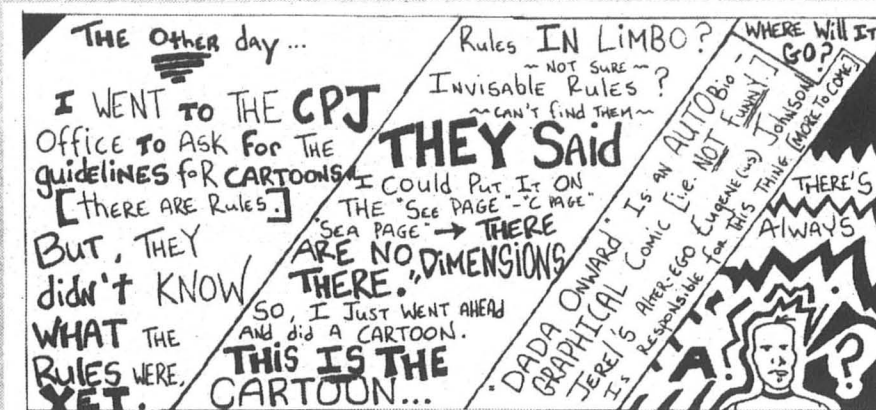 THE Other day...
I WENT TO THE CPJ
Office TO ASK FOR THE
guidelines foR CARTOONS.
[THERE ARE Rules.]
But, THEY
didn't KNOW
WHAT THE
Rules WERE,
YET.
Rules IN LiMBO?
~ NOT SURE ~
INVISABLE RULES?
~ CAN'T find THEM ~
THEY SAid
I COULD PUT IT ON
THE "SEE PAGE"-"C PAGE"
"SEA PAGE" → THERE
ARE NO DiMENSIONS
THERE."
SO, I JUST WENT AHEAd
AND did A CARTOON.
THIS IS THE
CARTOON...
"DADA ONWARD" IS AN AUTOBiO-
GRAPHICAL COMIC [i.e. NOT FUNNY.]
JEREI'S ALTER-EGO EUGENE(US) JOHNSON
IS RESPONSIBLE FOR THIS THING. [MORE TO COME]
WHERE Will IT
GO?
THERE'S
ALWAYS
A
?